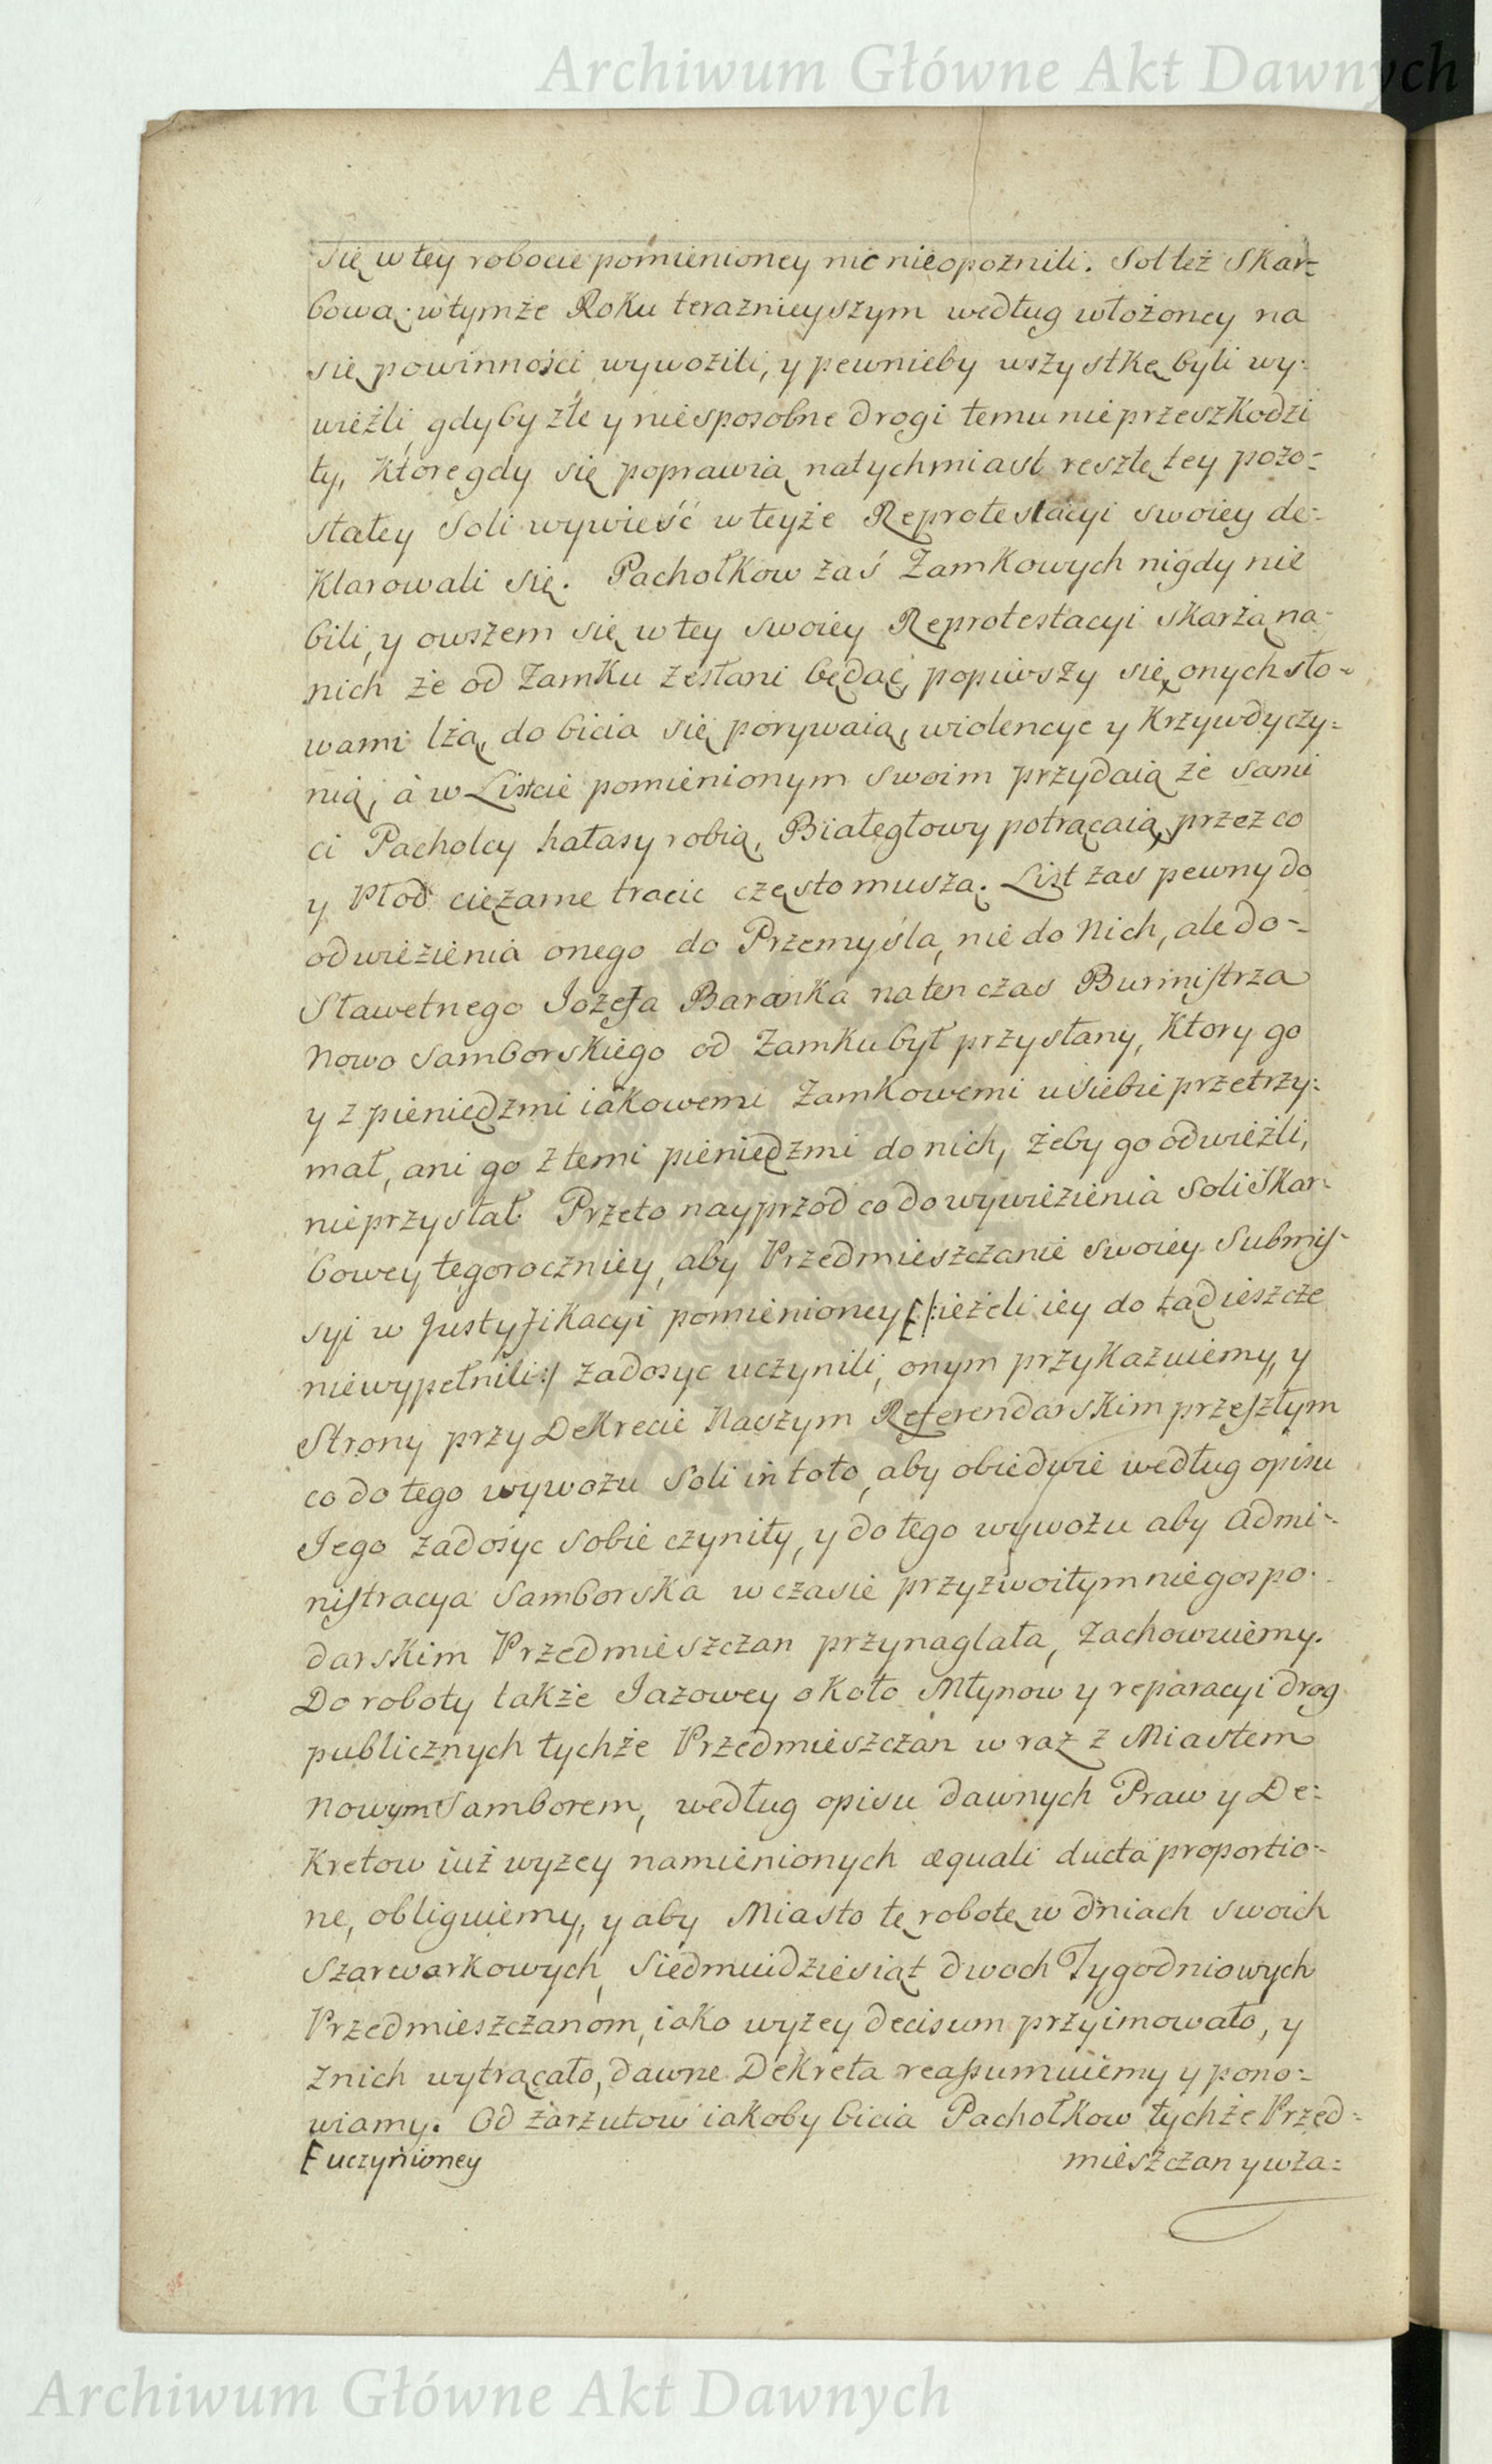 Archiwum Główne Akt Dawnych
się w tey robocie pomienioney nic nieopoznili. Sol też Skar-
bową w tymże Roku teraznieyszym według włożoney na
się powinności wywozili, y pewnieby wszystkę byli wy-
wieźli, gdyby złe y niesposobne drogi temu nieprzeszkodzi
ły, które gdy się poprawią natychmiast resztę tey pozo-
stałey Soli wywieść w teyże Reprotestacyi swoiey de-
klarowali się. Pachołkow zaś Zamkowych nigdy nie
bili, y owszem się w tey swoiey Reprotestacyi skarżą na
nich że od Zamku zesłani będąc, popiwszy się onych sło-
wami lżą, do bicia się porywaią, wiolencye y Krzywdy czy-
nią, à w Liscie pomienionym swoim przydaią że sami
ci Pacholcy hałasy robią, Białegłowy potrącaią, przez co
y Płod ciężarne tracic często muszą. List zas pewny do
odwiezienia onego do Przemyśla, nie do Nich, ale do-
Sławetnego Jozefa Baranka na ten czas Burmistrza
Nowo Samborskiego od Zamku był przysłany, Ktory go
y z pieniędzmi iakowemi Zamkowemi u siebie przetrzy-
mał, ani go z temi pieniędzmi do nich, żeby go odwieźli,
nieprzysłał. Przeto nayprzod co do wywiezienia Soli Skar-
bowey tegoroczniey, aby Przedmieszczanie swoiey Submis-
syi w Justyfikacyi pomienioney [/:ieżeli iey do tąd ieszcze
niewypełnili:/ zadosyc uczynili, onym przykazuiemy, y
Strony przy Dekrecie Naszym Referendarskim przeszłym
co do tego wywozu Soli in toto, aby obiedwie według opisu
Jego zadosyc sobie czyniły, y do tego wywozu aby Admi-
nistracya Samborska w czasie przyzwoitym niegospo-
darskim Przedmieszczan przynaglała, zachowuiemy.
Do roboty także Jazowey około Młynow y reparacyi drog
publicznych tychże Przedmieszczan w raz z Miastem
Nowym Samborem, według opisu dawnych Praw y De-
kretow iuż wyzey namienionych æquali ducta proportio-
ne, obliguiemy, y aby Miasto tę robotę w dniach swoich
Szarwarkowych, Siedmuidziesiąt dwoch Tygodniowych
Przedmieszczanom, iako wyżey decisum przyimowało, y
z nich wytrącało, dawne Dekreta reassumuiemy y pono-
wiamy. Od zarzutow iakoby bicia Pachołkow tychże Przed-
[ uczynioney
mieszczan y wza-
Archiwum Główne Akt Dawnych